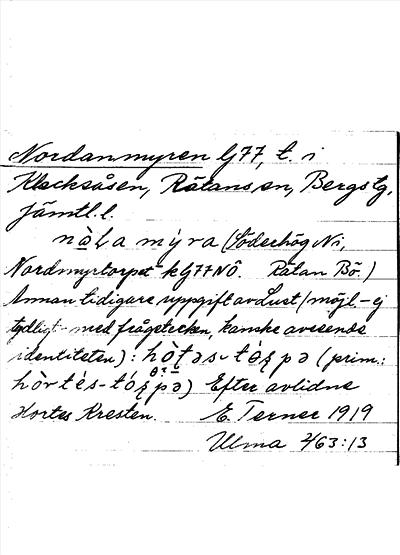 Nordanmyren bj77, t. i
Klacksåsen, Rätans sn, Bergs tg,
Jämtl. l.
nàla mýra (Söderhög Ni,
Nordmyrtorpet k bj77NÖ. Rätan Bö.)
Annan tidigare uppgift av Lust (möjl. ej
tydligt - med frågetecken, kanske avseende
identiteten): (prim.:
Efter avlidne
Hortes Kresten. E. Terner 1919
Ulma 2/63:13